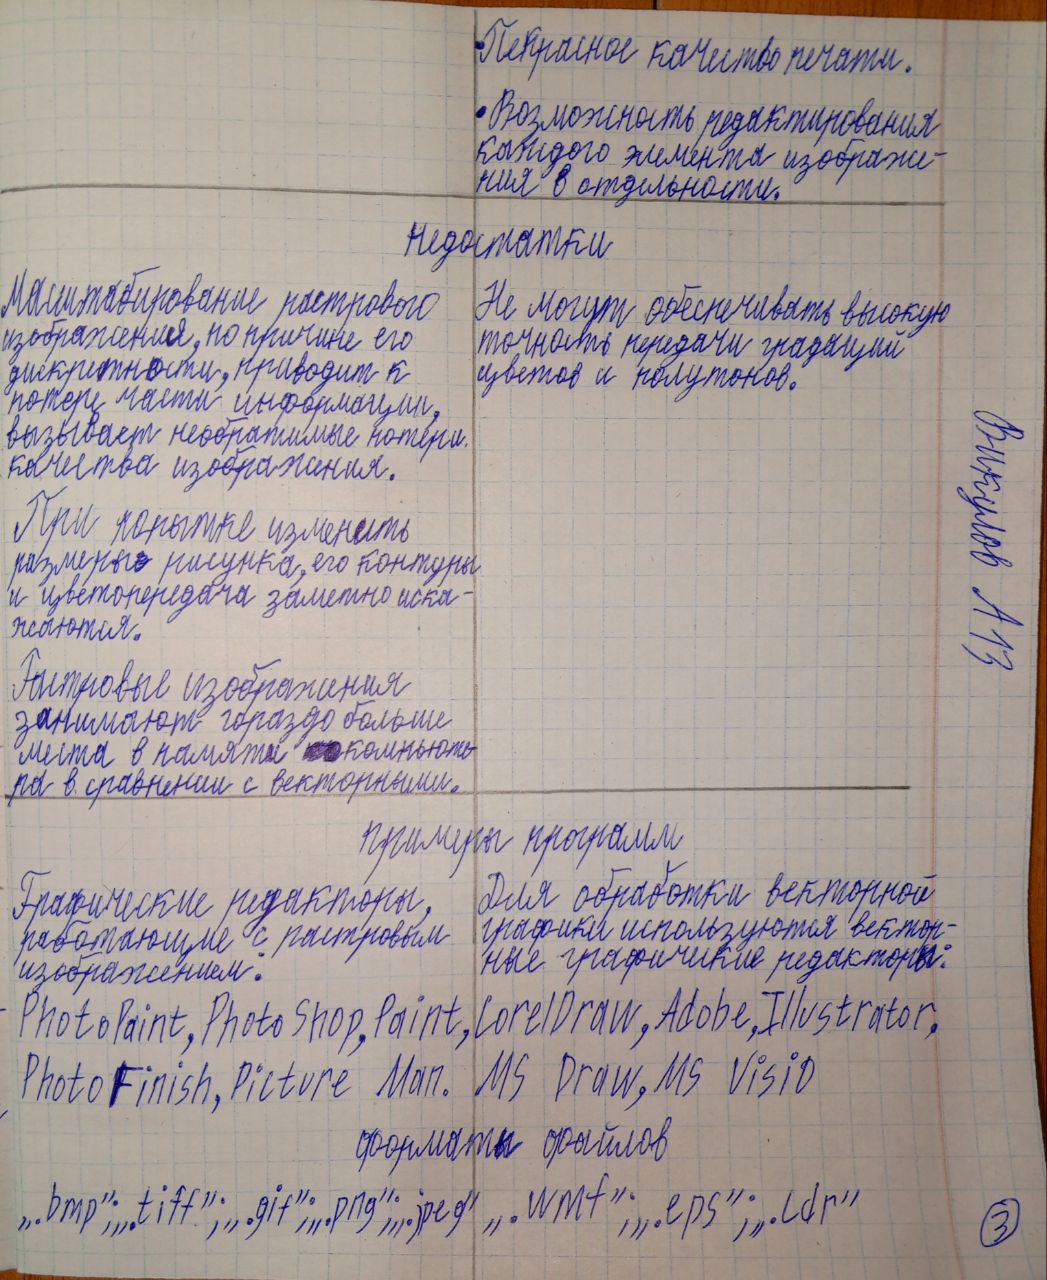 • Пекрасное качество печати.
• Возможность редактирования
каждого элемента изображе-
ния в отдельности.
Недостатки
Масштабирование растрового
изображения, по причине его
дискретности, приводит к
потере части информации,
вызывает необратимые потери
качества изображения.
При попытке изменить
размеры рисунка, его контуры
и цветопередача заметно иска-
жаются.
Растровые изображения
занимают гораздо больше
места в памяти компьюте-
ра в сравнении с векторными.
Не могут обеспечивать высокую
точность передачи градаций
цветов и полутонов.
Примеры программ
Графические редакторы,
работающие с растровым
изображением:
PhotoPaint, PhotoShop, Paint,
PhotoFinish, Picture Man.
Для обработки векторной
графики используются вектор-
ные графические редакторы:
CorelDraw, Adobe, Illustrator,
MS Draw, MS Visio
форматы файлов
„.bmp”; „.tiff”; „.gif”; „.png”; „.jpeg”
„.wmf”; „.eps”; „.cdr”
Викулов А 13
3